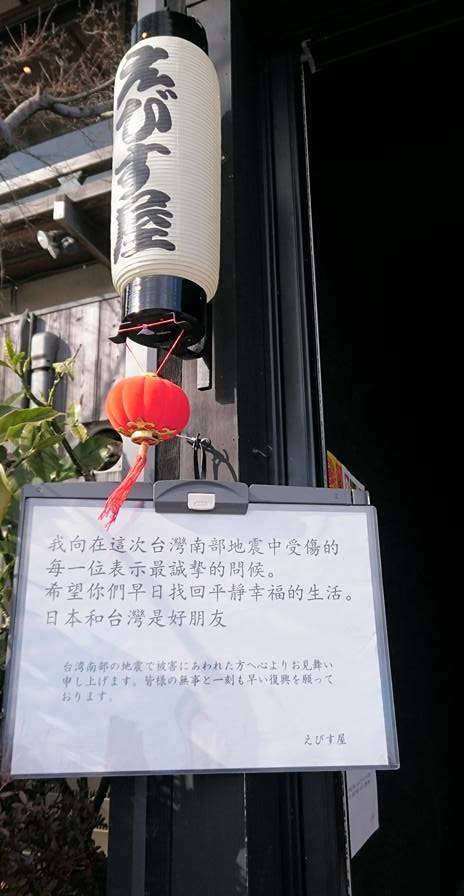 えびす屋
我向在這次台灣南部地震中受傷的
每一位表示最誠摯的問候。
希望你們早日找回平靜幸福的生活。
日本和台灣是好朋友
台湾南部の地震で被害にあわれた方へ心よりお見舞い
申し上げます。皆様の無事と一刻も早い復興を願って
おります。
えびす屋